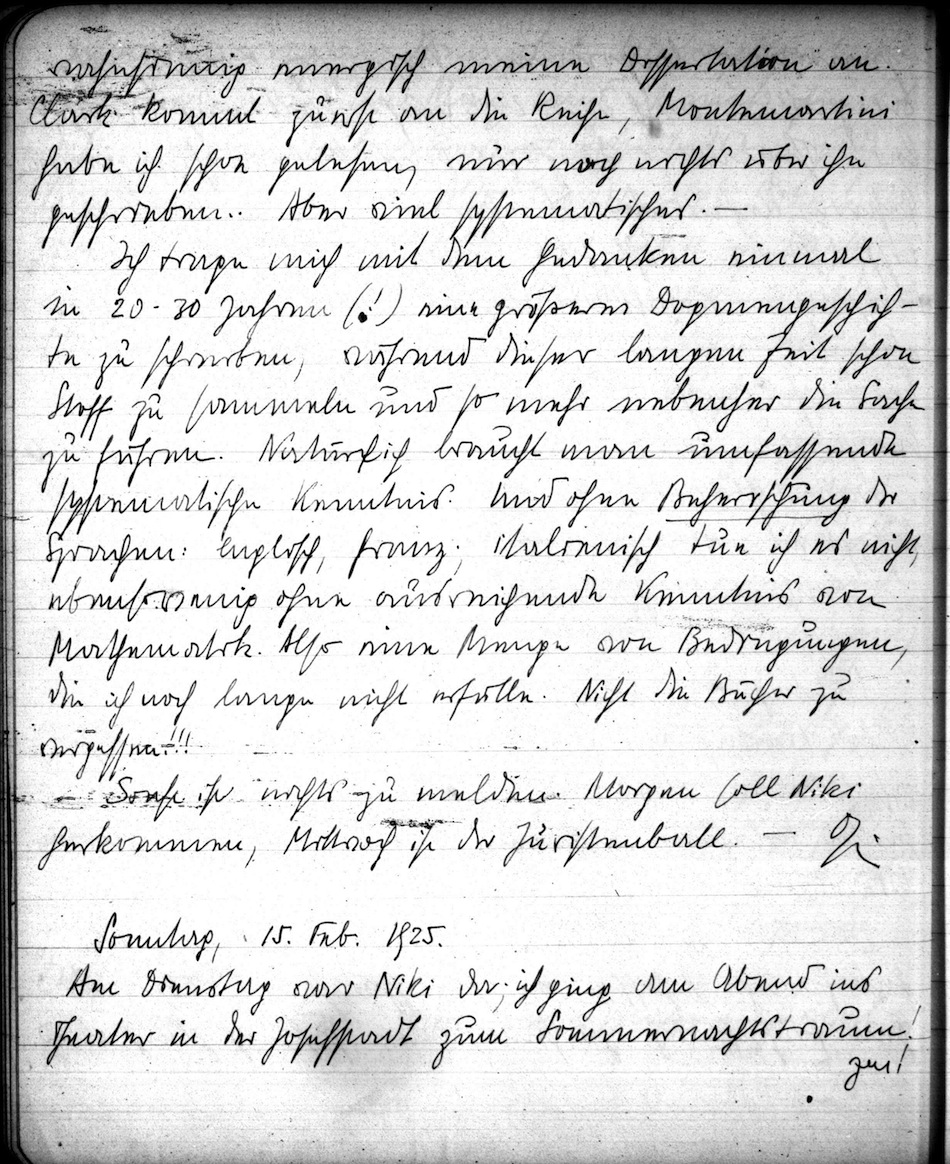 energisch meine Dissertation an.
Clark kommt zuerst an die Reihe, Montemartini
habe ich schon gelesen, nur noch nichts über ihn
geschrieben.. Aber viel systematisches. —
Ich trage mich mit dem Gedanken einmal
in 20-30 Jahren (!) eine größere Dogmengeschich-
te zu schreiben, während dieser langen Zeit schon
Stoff zu sammeln und so mehr nebenher die Sache
zu führen. Natürlich braucht man umfassende
systematische Kenntnis. Und ohne Beherrschung der
Sprachen: Englisch, franz., italienisch tue ich es nicht,
ebensowenig ohne ausreichende Kenntnis von
Mathematik. Also eine Menge von Bedingungen,
die ich noch lange nicht erfülle. Nicht die Bücher zu
vergessen!!!
– Sonst ist nichts zu melden. Morgen soll Niki
herkommen, Mittwoch ist der Juristenball. —
Sonntag, 15. Feb. 1925.
Am Dienstag war Niki da; ich ging am Abend ins
Theater in der Josefstadt zum Sommernachtstraum!